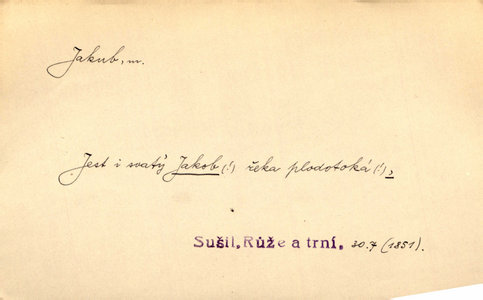 Jakub, m.
Jest i svatý Jakob (!) řeka plodotoká (!),
Sušil, Růže a trní, 30.7 (1851).